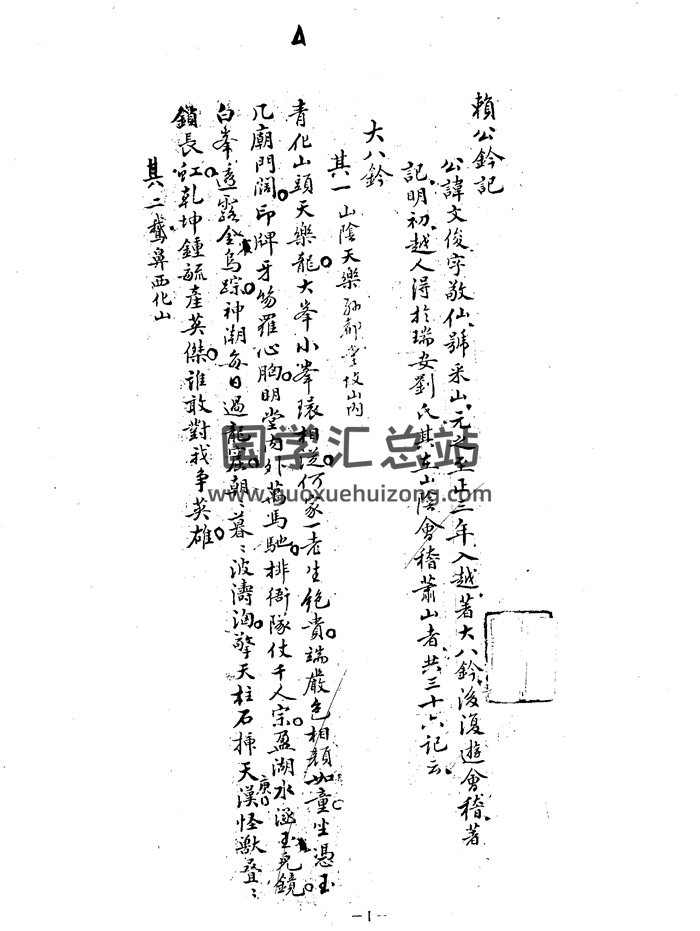 賴公鈐記
公諱文俊字敬仙號采山元之至正三年入越著大八鈐後復遊會稽著
記明初越人得於瑞安劉氏其在山陰會稽蕭山者共三十六記云
大八鈐
其一 山陰天樂 孫都堂坟山內
青化山頭天樂龍大峯小峯環相從何家一老生絶貴端嚴色相顏如童坐憑玉
几廟門闊印牌牙笏羅心胸明堂內外萬馬馳排衙隊仗千人宗盈湖水涵玉兎鏡
白峯透露金烏踪神潮每日過龍庭朝〻暮〻波濤洶擎天柱石插天漢怪獸疊〻
鎖長虹乾坤鍾毓產英傑誰敢對我争英雄
其二 鵞鼻西化山
国学汇总站
www.guoxuehuizong.com
-1-